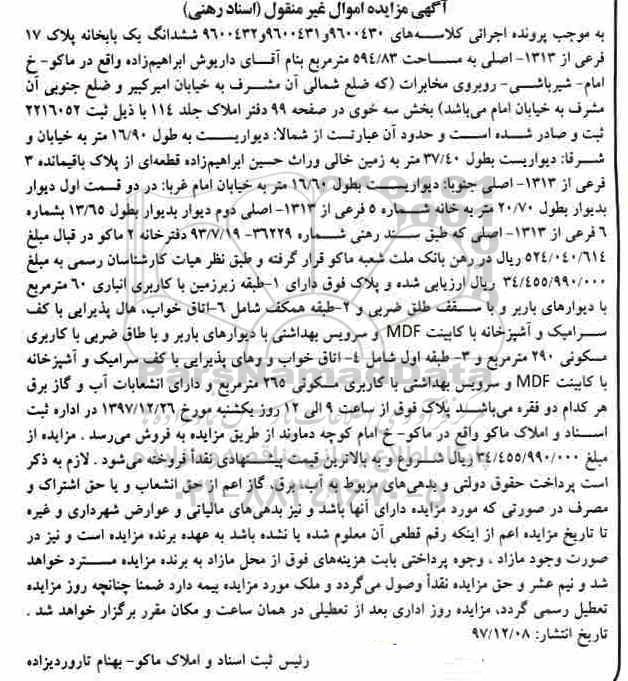 آگهی مزایده اموال غیر منقول (اسناد رهنی)
به موجب پرونده اجرائی کلاسه‌های ۹۶۰۰۴۳۰و۹۶۰۰۴۳۱و۹۶۰۰۴۳۲ ششدانگ یک بابخانه پلاک ۱۷
فرعی از ۱۳۱۳- اصلی به مساحت ۵۹۴/۸۳ مترمربع بنام آقای داریوش ابراهیم‌زاده واقع در ماکو- خ
امام- شیرباشی- روبروی مخابرات (که ضلع شمالی آن مشرف به خیابان امیرکبیر و ضلع جنوبی آن
مشرف به خیابان امام می‌باشد) بخش سه خوی در صفحه ۹۹ دفتر املاک جلد ۱۱۴ با ذیل ثبت ۲۲۱۶۰۵۲
ثبت و صادر شده است و حدود آن عبارتست از شمالا: دیواریست به طول ۱۶/۹۰ متر به خیابان و
شرقا: دیواریست بطول ۳۷/۴۰ متر به زمین خالی وراث حسین ابراهیم‌زاده قطعه‌ای از پلاک باقیمانده ۳
فرعی از ۱۳۱۳- اصلی جنوبا: دیواریست بطول ۱۶/۶۰ متر به خیابان امام غربا: در دو قمست اول دیوار
بدیوار بطول ۲۰/۷۰ متر به خانه شماره ۵ فرعی از ۱۳۱۳- اصلی دوم دیوار بدیوار بطول ۱۳/۶۵ بشماره
۶ فرعی از ۱۳۱۳- اصلی که طبق سند رهنی شماره ۳۶۲۲۹- ۹۳/۷/۱۹ دفترخانه ۲ ماکو در قبال مبلغ
۵۲۴/۰۴۰/۶۱۴ ریال در رهن بانک ملت شعبه ماکو قرار گرفته و طبق نظر هیات کارشناسان رسمی به مبلغ
۳۴/۴۵۵/۹۹۰/۰۰۰ ریال ارزیابی شده و پلاک فوق دارای ۱-طبقه زیرزمین با کاربری انباری ۶۰ مترمربع
با دیوارهای باربر و با سقف طلق ضربی و ۲-طبقه همکف شامل ۶-اتاق خواب، هال پذیرایی با کف
سرامیک و آشپزخانه با کابینت MDF و سرویس بهداشتی با دیوارهای باربر و با طاق ضربی با کاربری
مسکونی ۲۹۰ مترمربع و ۳- طبقه اول شامل ۴- اتاق خواب و وهای پذیرایی با کف سرامیک و آشپزخانه
با کابینت MDF و سرویس بهداشتی با کاربری مسکونی ۲۶۵ مترمربع و دارای انشعابات آب و گاز برق
هر کدام دو فقره می‌باشند پلاک فوق از ساعت ۹ الی ۱۲ روز یکشنبه مورخ ۱۳۹۷/۱۲/۲۶ در اداره ثبت
اسناد و املاک ماکو واقع در ماکو- خ امام کوچه دماوند از طریق مزایده به فروش می‌رسد . مزایده از
مبلغ ۳۴/۴۵۵/۹۹۰/۰۰۰ ریال شروع و به بالاترین قیمت پیشنهادی نقداً فروخته می‌شود . لازم به ذکر
است پرداخت حقوق دولتی و بدهی‌های مربوط به آب، برق، گاز اعم از حق انشعاب و یا حق اشتراک و
مصرف در صورتی که مورد مزایده دارای آنها باشد و نیز بدهی‌های مالیاتی و عوارض شهرداری و غیره
تا تاریخ مزایده اعم از اینکه رقم قطعی آن معلوم شده یا نشده باشد به عهده برنده مزایده است و نیز در
صورت وجود مازاد ، وجوه پرداختی بابت هزینه‌های فوق از محل مازاد به برنده مزایده مسترد خواهد
شد و نیم عشر و حق مزایده نقداً وصول می‌گردد و ملک مورد مزایده بیمه دارد ضمنا چنانچه روز مزایده
تعطیل رسمی گردد، مزایده روز اداری بعد از تعطیلی در همان ساعت و مکان مقرر برگزار خواهد شد .
تاریخ انتشار: ۹۷/۱۲/۰۸
رئیس ثبت اسناد و املاک ماکو- بهنام تاروردیزاده
ParsNamadData
۰۲۱-۸۸۳۴۹۶۷۰-۵